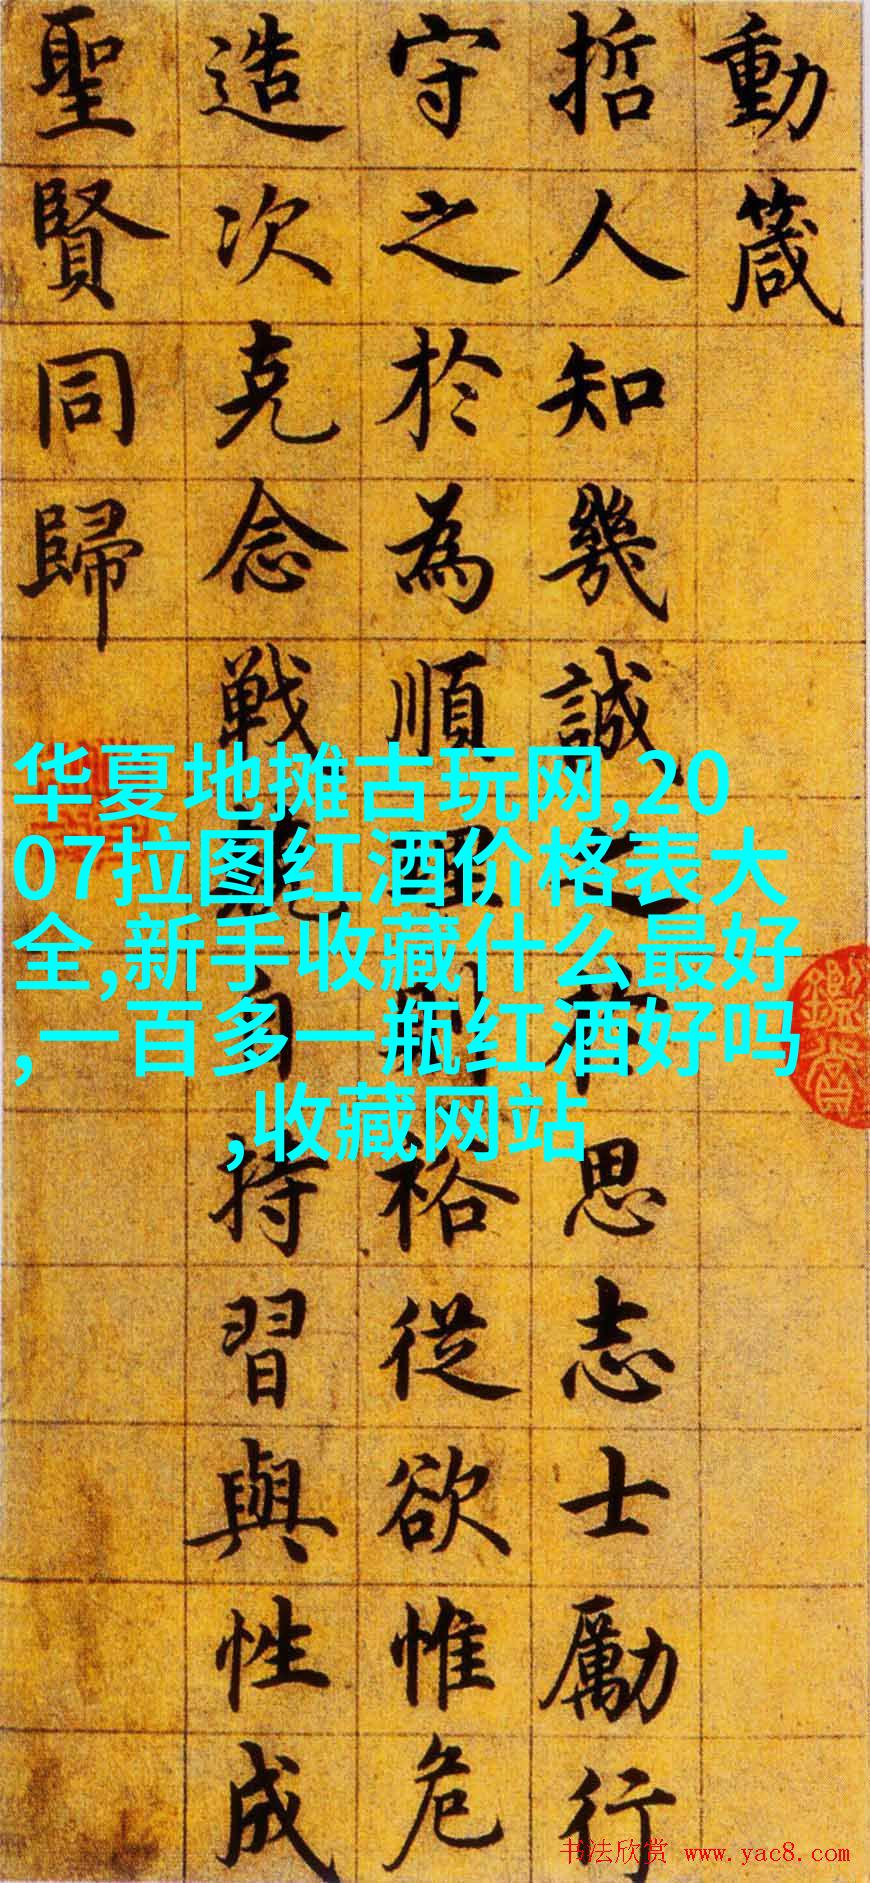 動箴
哲人知幾誠之於思志士勵行
守之於為順理則裕從欲惟危
造次克念戰兢自持習與性成
聖賢同歸
华夏地摊古玩网,20
07拉图红酒价格表大
全,新手收藏什么最好
,一百多一瓶红酒好吗
,收藏网站
书法欣赏 www.yac8.com